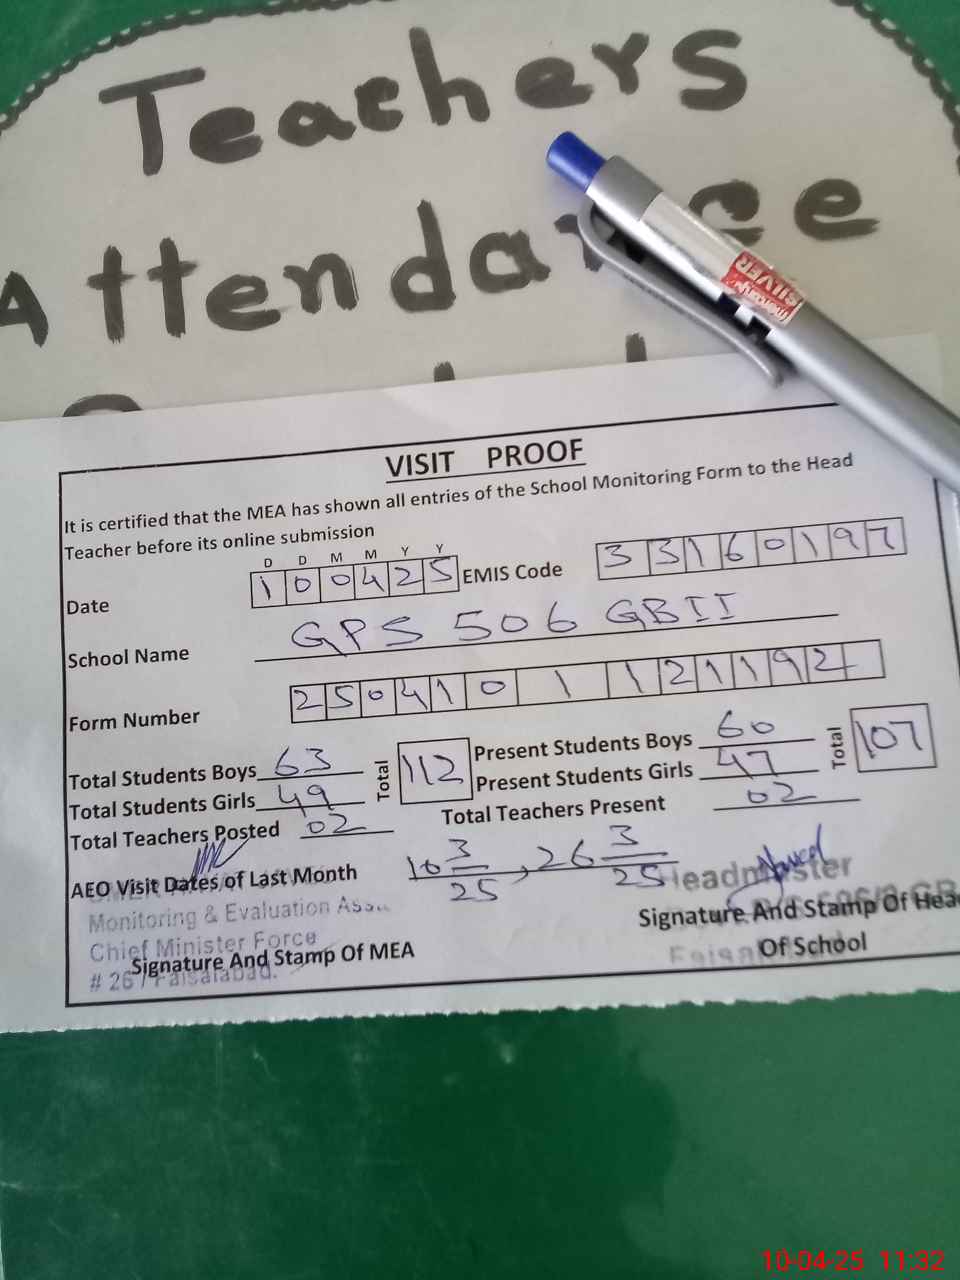 Teachers
Attendance
SILVER
VISIT PROOF
It is certified that the MEA has shown all entries of the School Monitoring Form to the Head
Teacher before its online submission
D D M M Y Y
Date 1 0 0 4 2 5 EMIS Code 3 3 1 6 0 1 9 7
School Name GPS 506 GBII
Form Number 2 5 0 4 1 0 1 1 2 1 1 9 2
Total Students Boys 63 Total 112 Present Students Boys 60 Total 107
Total Students Girls 49 Present Students Girls 47
Total Teachers Posted 02 Total Teachers Present 02
AEO Visit Dates of Last Month 10 3/25, 26 3/25
Headmaster
Monitoring & Evaluation
Chief Minister Force
# 26 / Faisalabad.
Signature And Stamp Of MEA
Signature And Stamp Of Head
Of School
10-04-25 11:32